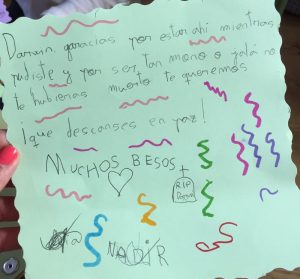 Darwin, gracias por estar ahí mientras
pudiste y por ser tan mono ojalá no
te hubieras muerto te queremos
¡que descanses en paz!
MUCHOS BESOS
RIP
NADIR